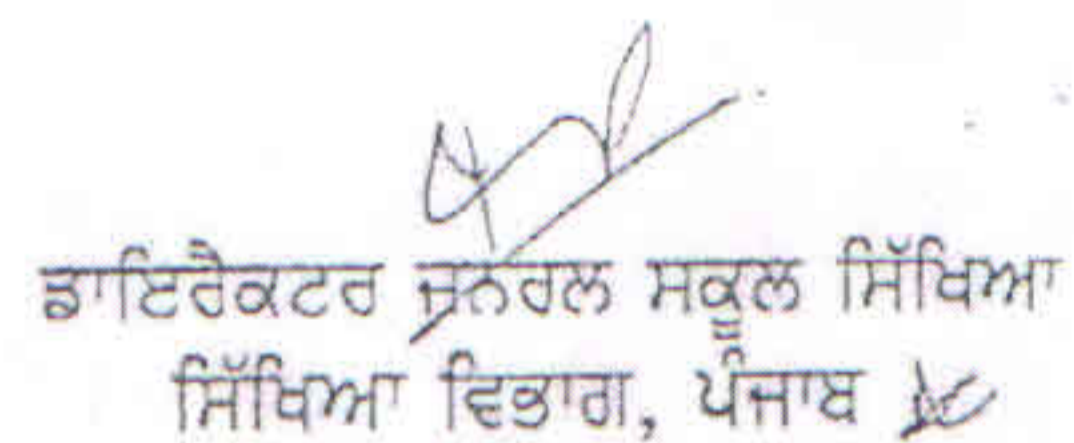 ਡਾਇਰੈਕਟਰ ਜਨਰਲ ਸਕੂਲ ਸਿੱਖਿਆ
ਸਿੱਖਿਆ ਵਿਭਾਗ, ਪੰਜਾਬ